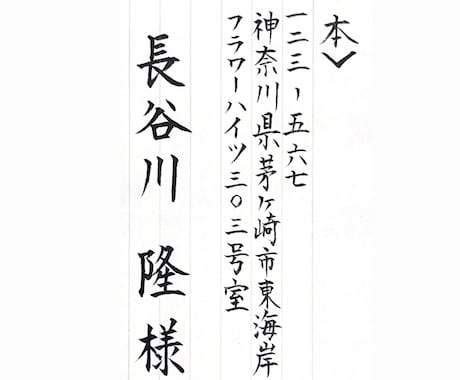 本
一二三-五六七
神奈川県茅ヶ崎市東海岸
フラワーハイツ三〇三号室
長谷川 隆 様